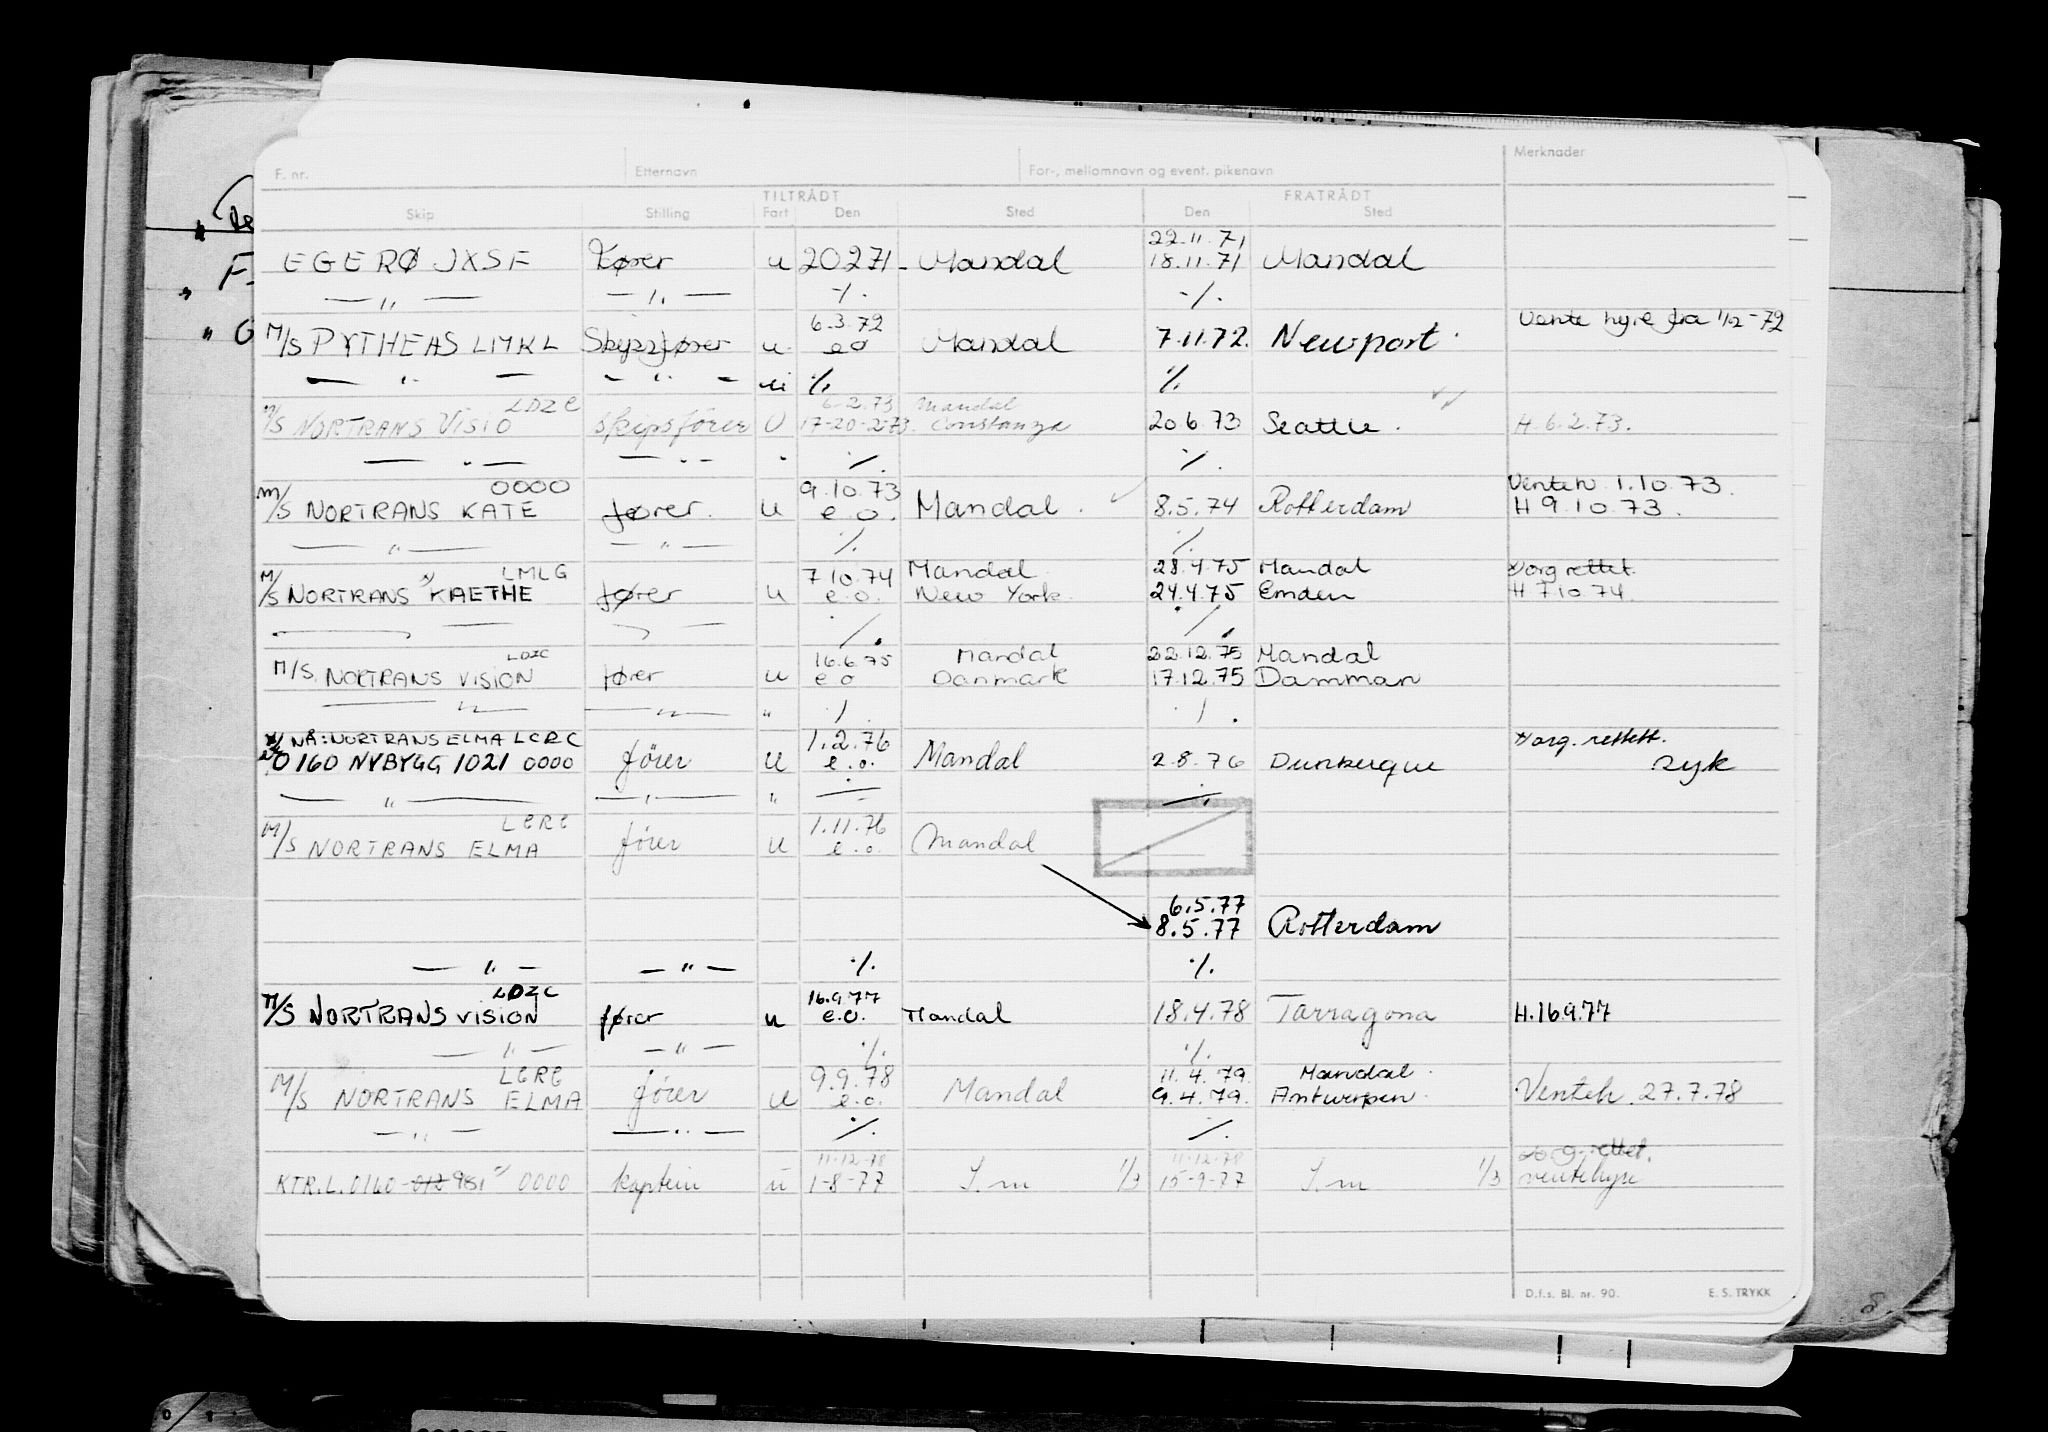 F. nr. Etternavn For-, mellomnavn og event. pikenavn Merknader
TILTRÅDT FRATRÅDT
Skip Stilling Fart Den Sted Den Sted
22.11.71
EGERØ JXSF Fører u 20271- Mandal 18.11.71 Mandal
— " — — " — ·/. ·/.
6.3.72 Vente hyre fra 1/12-72
M/S PYTHEAS LMKL Skipsfører u eo Mandal 7.11.72. Newport.
— " — — " — ui ·/. ·/.
LDZC 6.2.73 Mandal
M/S NORTRANS VISIO skipsfører U 17-20-2-73. Constanza 20.6.73 Seattle. H.6.2.73.
— " — — " — " ·/. ·/.
0000 9.10.73 Venteh 1.10.73.
M/S NORTRANS KATE fører. u e.o. Mandal. 8.5.74 Rotterdam H 9.10.73.
— " — — " — ·/. ·/.
LMLG 7.10.74 Mandal 28.4.75 Mandal x) org rettet.
M/S NORTRANS x) KAETHE fører u e.o. New York. 24.4.75 Emden H.7.10.74.
·/. ·/.
LDZC 16.6.75 Mandal 22.12.75 Mandal
M/S. NORTRANS VISION fører u eo Danmark 17.12.75 Damman
— " — — " — " ·/. ·/.
x) NÅ: NORTRANS ELMA LCRC 1.2.76 x) org. rettett.
0160 NYBYGG 1021 0000 fører u e.o. Mandal 2.8.76 Dunkerque syk
— " — — " — " ·/. ·/.
LCRC 1.11.76
M/S NORTRANS ELMA fører u e.o. Mandal
6.5.77
8.5.77 Rotterdam
— " — — " — ·/. ·/.
LDZC 16.9.77
M/S NORTRANS VISION fører u e.o. Mandal 18.4.78 Tarragona H.16977
— " — — " — ·/. ·/.
LCRC 9.9.78 11.4.79. Mandal.
M/S NORTRANS ELMA fører u e.o. Mandal 9.4.79. Antwerpen. Venteh. 27.7.78
— " — — " — ·/. ·/.
11.12.78 11.12.78 x) org. rettet.
KTR.L.0160-012 951 x) 0000 kaptein u 1-8-77 S.m 1/3 15-9-77 S.m 1/3 ventehyre
D.f.s. Bl. nr. 90. E. S. TRYKK